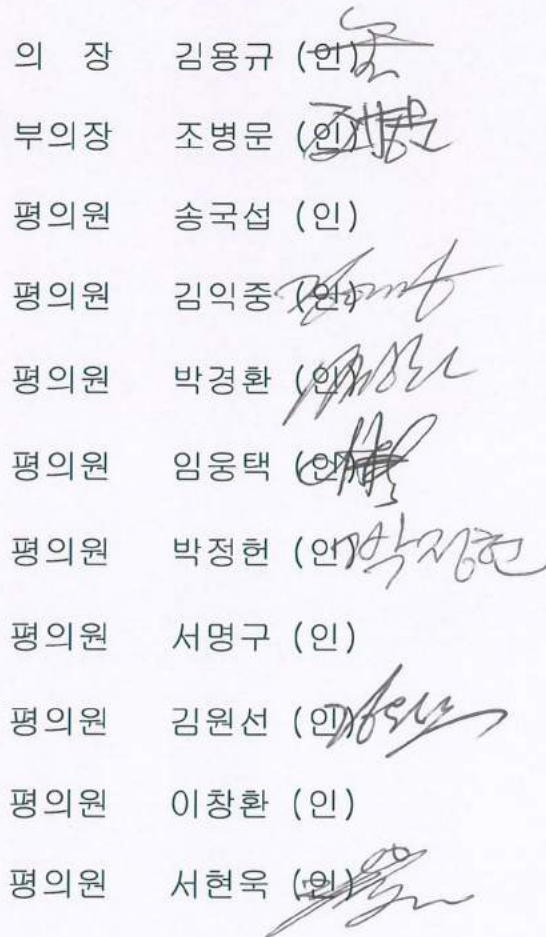 의 장 김용규 (인)
부의장 조병문 (인)
평의원 송국섭 (인)
평의원 김익중 (인)
평의원 박경환 (인)
평의원 임웅택 (인)
평의원 박정헌 (인) 박정헌
평의원 서명구 (인)
평의원 김원선 (인)
평의원 이창환 (인)
평의원 서현욱 (인)